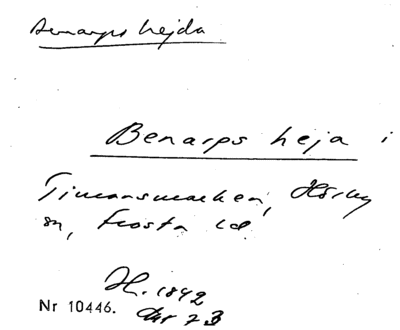 Benarps hejda
Benarps heja i
Timansmarken, Hörby
sn, Frosta hd
H. 1842
Nr 10446.